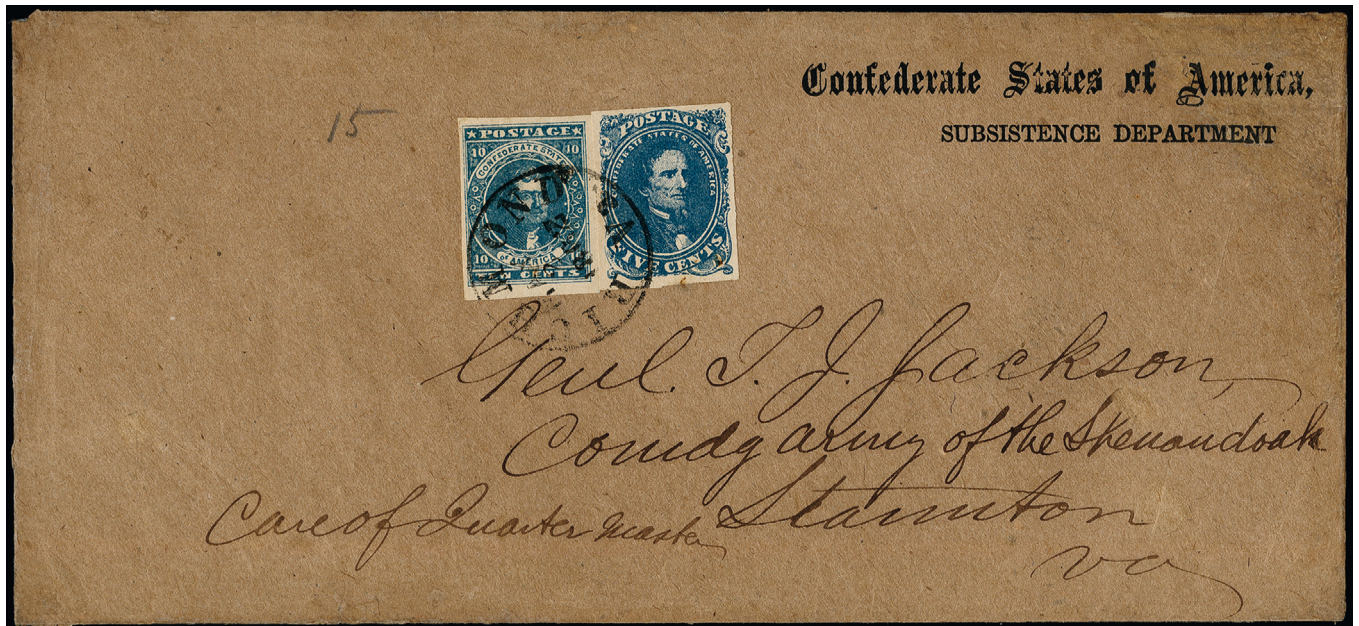 Confederate States of America,
SUBSISTENCE DEPARTMENT
15
★ POSTAGE ★
10 10
CONFEDERATE STATES
OF AMERICA
10 10
CENTS
POSTAGE
CONFEDERATE STATES OF AMERICA
FIVE CENTS
RICHMOND VA.
Genl. T. J. Jackson,
Comdg army of the Shenandoah
Staunton
Care of Quarter Master
Va